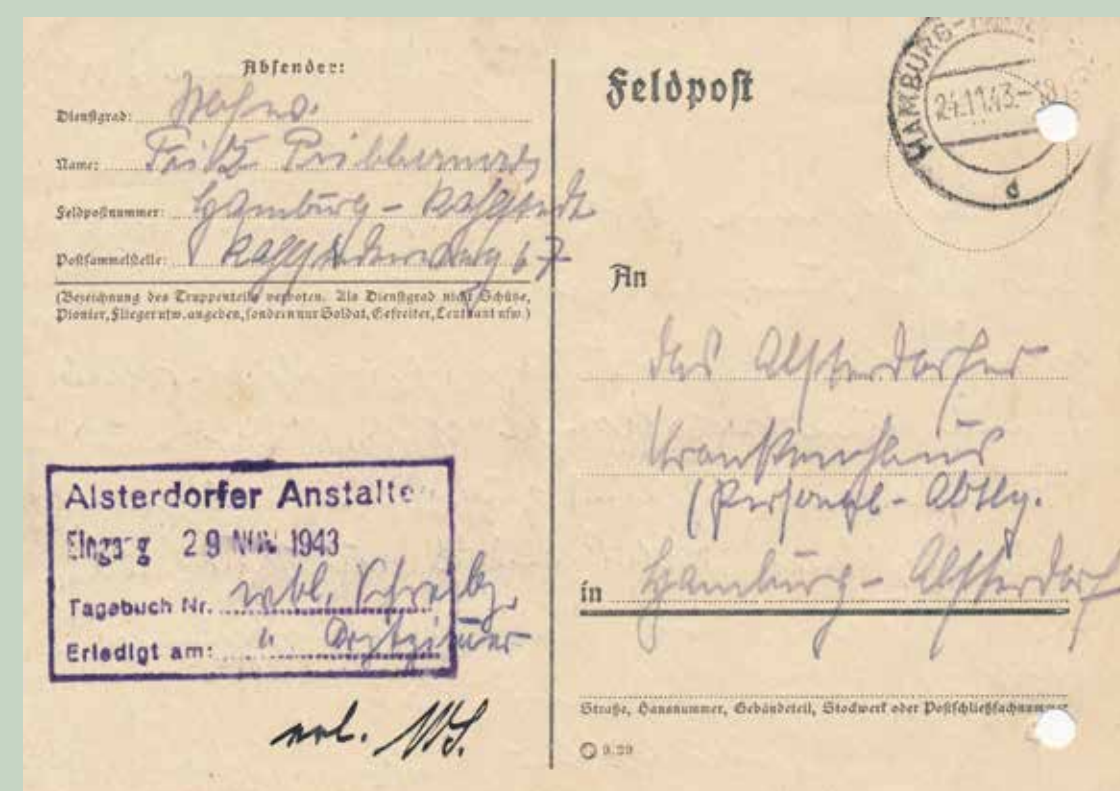 Absender:
Dienstgrad:
Name: Fritz
Feldpostnummer: Hamburg - Rahlstedt
Postsammelstelle: 67
(Bezeichnung des Truppenteils verboten. Als Dienstgrad nicht Schütze,
Pionier, Flieger usw. angeben, sondern nur Soldat, Gefreiter, Leutnant usw.)
Alsterdorfer Anstalten
Eingang 29 NOV. 1943
Tagebuch Nr. wbl.
Erledigt am: u Arztzimmer
erl.
Feldpost
HAMBURG-
24.11.43.-18
d
An
das Alsterdorfer
Krankenhaus
(Personal-Abtlg.
in Hamburg - Alsterdorf
Straße, Hausnummer, Gebäudeteil, Stockwerk oder Postschließfachnummer
9.39